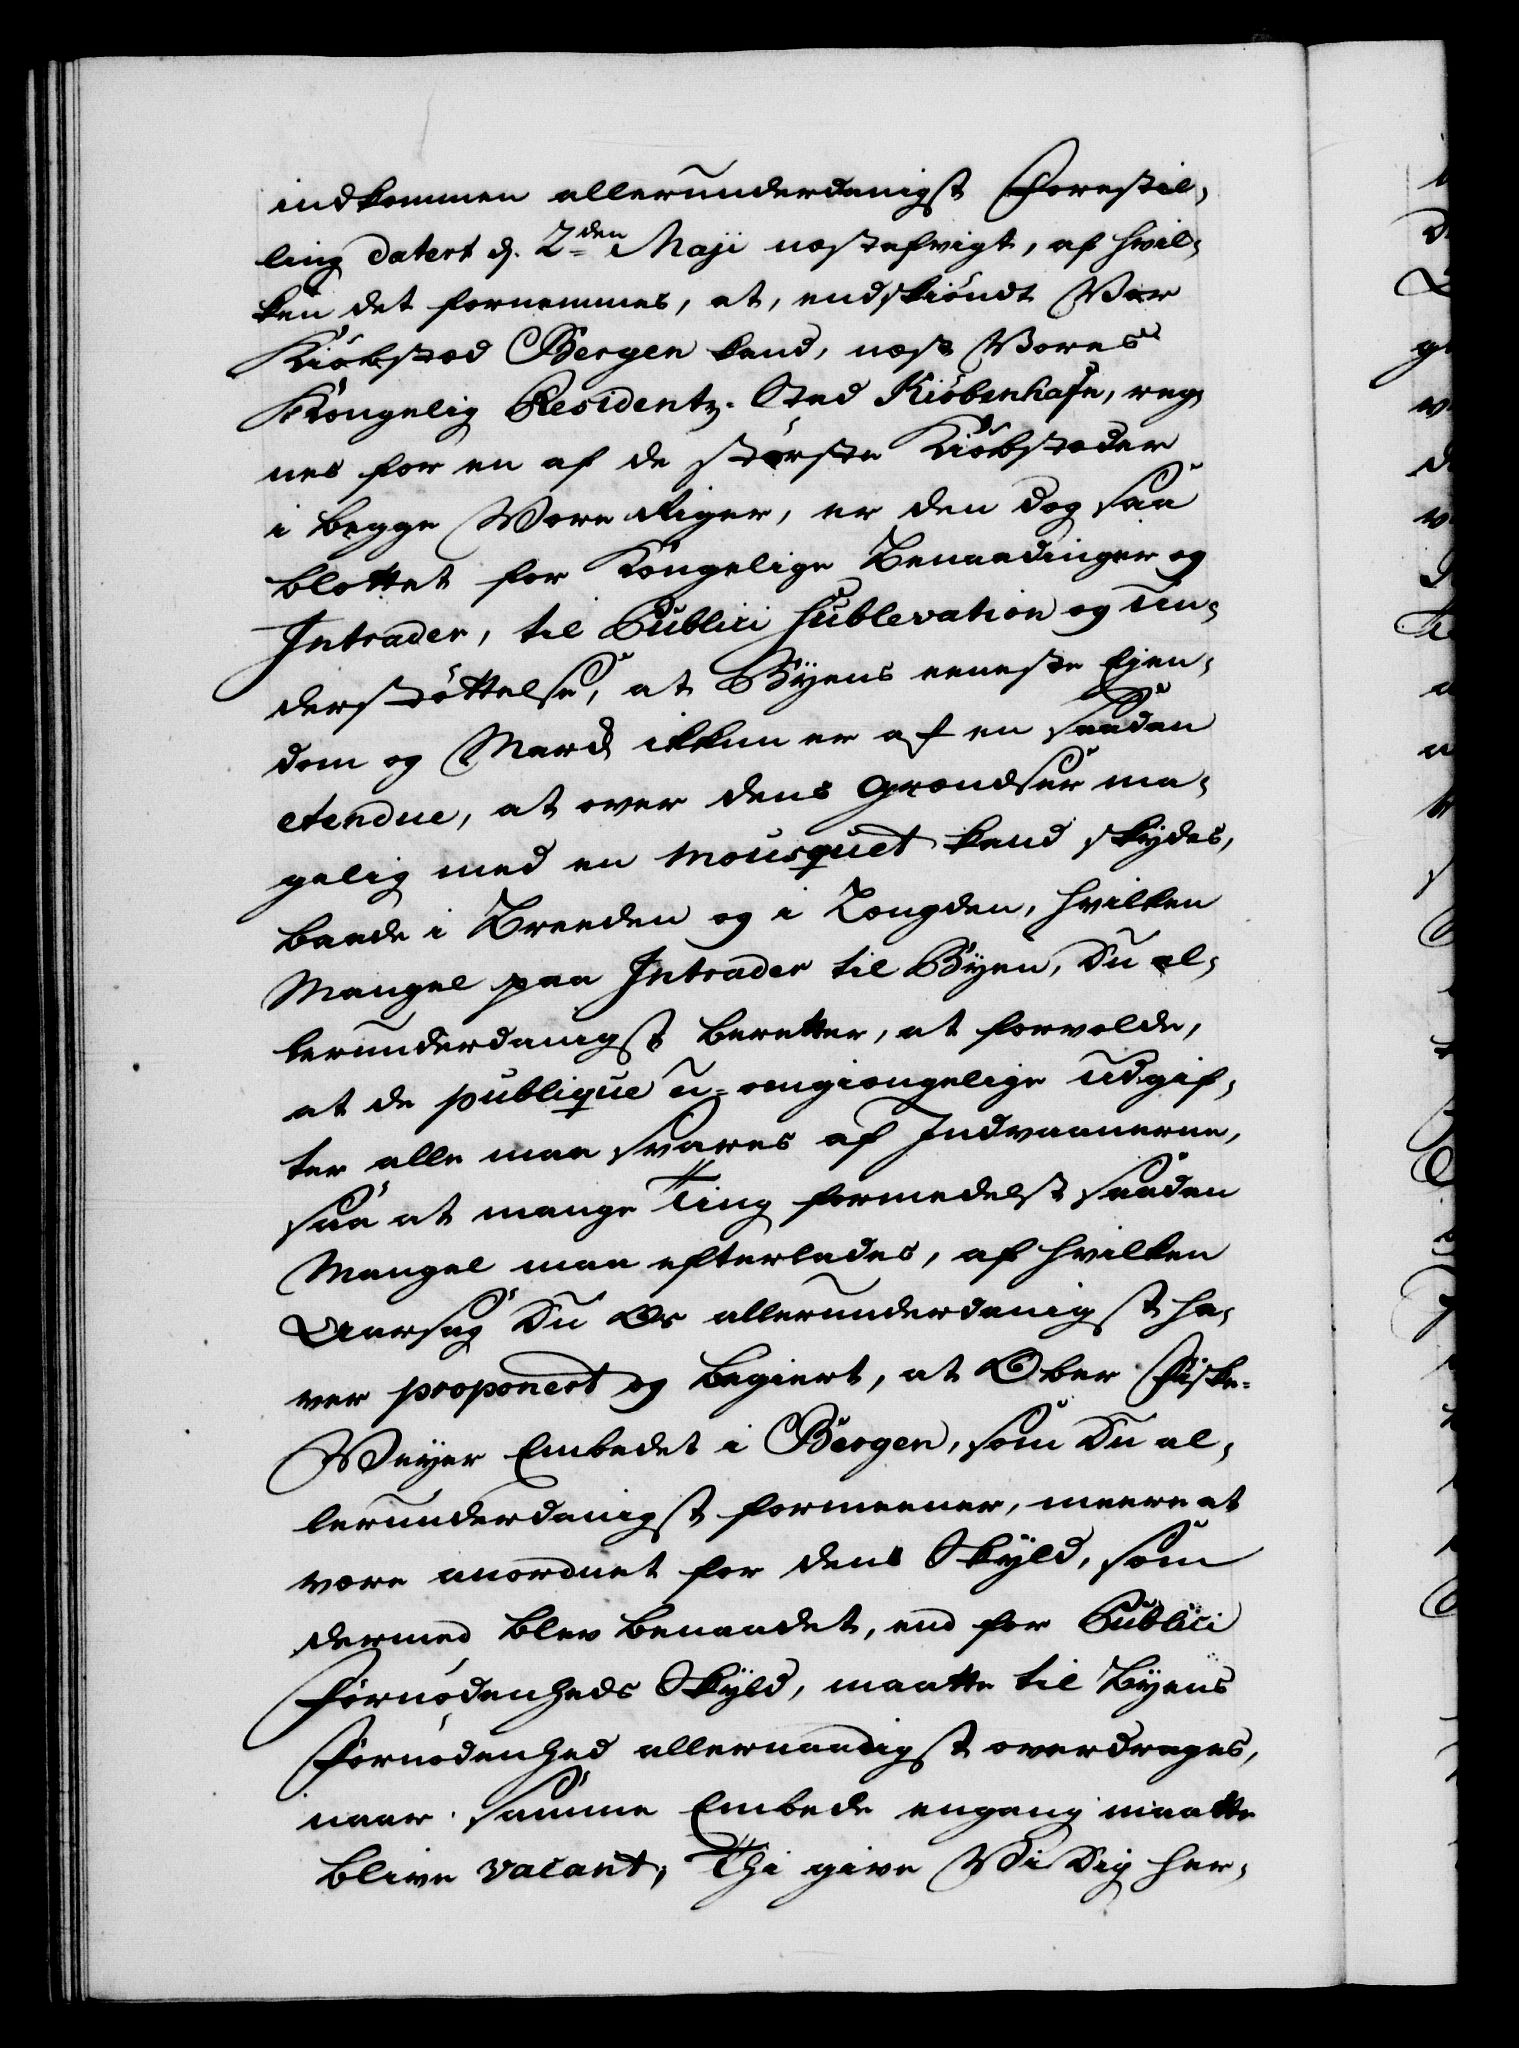 indkommen allerunderdanigst Forestil-
ling datert d. 2den Maji næstafvigt, af hvil-
ken det fornemmes, at, endskiöndt Vor
Kiöbstæd Bergen kand, næst Vores
Kongelig Residentz-Stad Kiöbenhafn, reg-
nes for en af de störste Kiöbstæder
i begge Vore Riger, er den dog saa
blottet for Kongelige Benaadinger og
Intrader, til Publici Sublevation og Un-
derstöttelse, at Byens eeneste Ejen-
dom og Mark ikkun er af en saadan
etendue, at over dens Grændser ma-
gelig med en Mousquet kand skydes,
baade i Breeden og i Længden, hvilken
Mangel paa Intrader til Byen, Du al-
lerunderdanigst beretter, at forvolde,
at de publique u-omgiængelige Udgif-
ter alle maa svares af Indvaanerne,
saa at mange Ting formedelst saadan
Mangel maa efterlades, af hvilken
Aarsag Du Os allerunderdanigst ha-
ver proponert og begiert, at Ober Fiske-
Veyer Embedet i Bergen, som Du al-
lerunderdanigst formeener, meere at
være anordnet for dens Skyld, som
dermed blev benaadet, end for Publici
Fornödenheds Skyld, maatte til Byens
Fornödenhed allernaadigst overdrages,
naar samme Embede engang maatte
blive vacant; Thi give Vi Dig her-